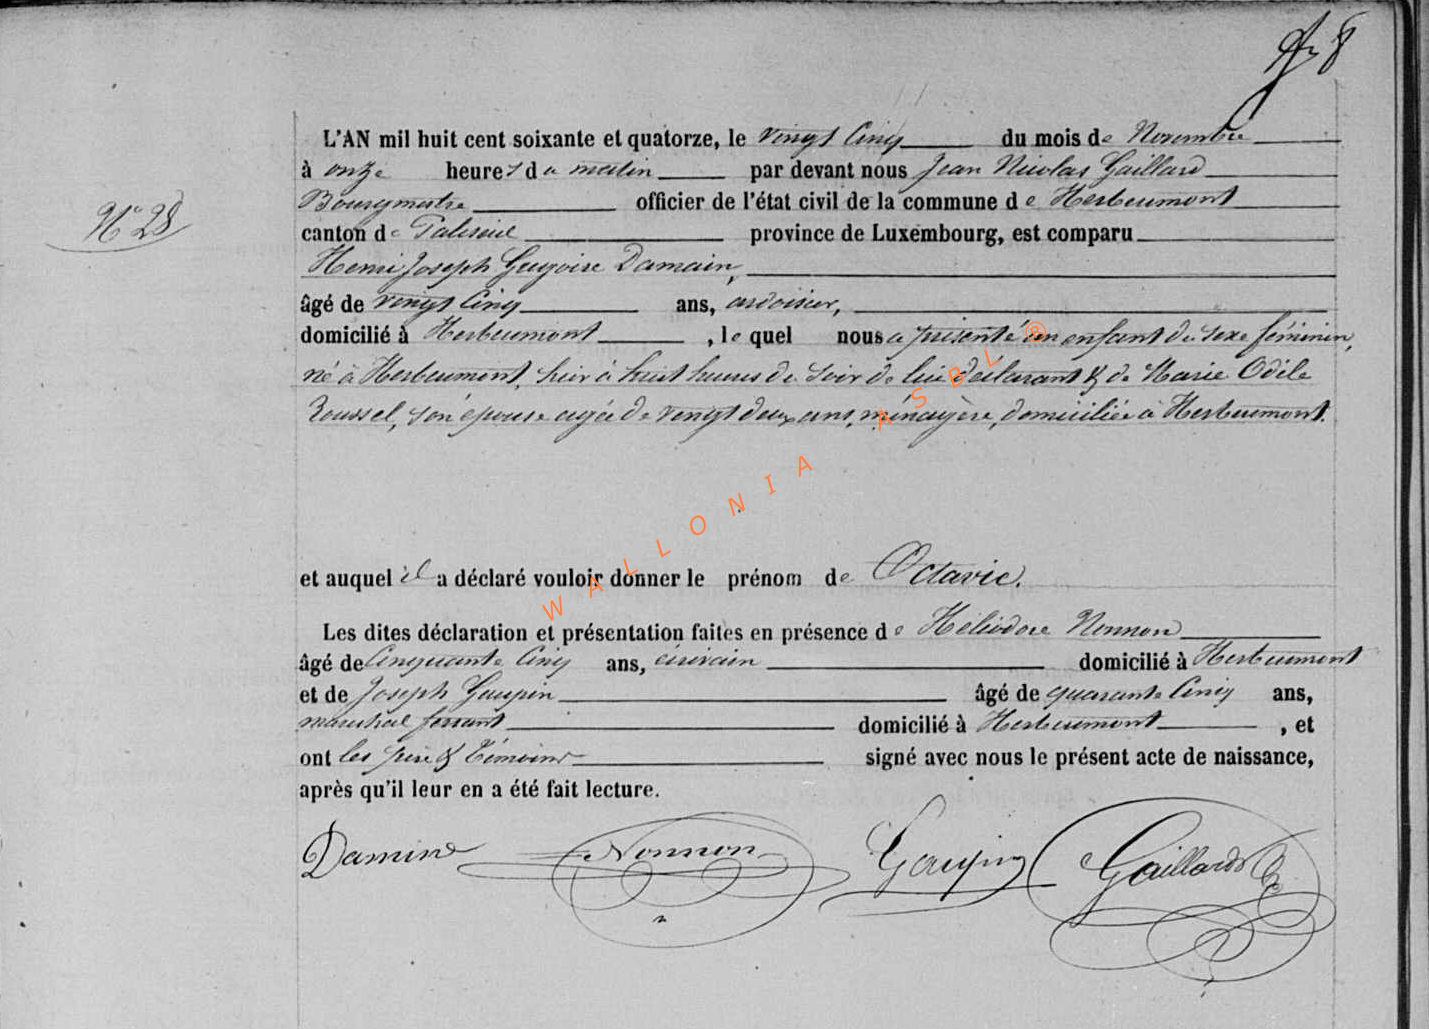 8
L'AN mil huit cent soixante et quatorze, le vingt Cinq du mois de Novembre
à onze heures du matin par devant nous Jean Nicolas Gaillard
N° 28
Bourgmestre officier de l'état civil de la commune de Herbeumont
canton de Paliseul province de Luxembourg, est comparu
Henri Joseph Grégoire Damain,
âgé de vingt Cinq ans, ardoisier,
domicilié à Herbeumont, le quel nous a présenté un enfant du sexe féminin,
né à Herbeumont, hier à huit heures du soir de lui déclarant & de Marie Odile
Roussel, son épouse agée de vingt deux ans, ménagère, domiciliée à Herbeumont.
WALLONIA ASBL ®
et auquel il a déclaré vouloir donner le prénom de Octavie.
Les dites déclaration et présentation faites en présence de Héliodore Nonnon
âgé de Cinquante Cinq ans, écrivain domicilié à Herbeumont
et de Joseph Goupin âgé de quarante Cinq ans,
maréchal ferrant domicilié à Herbeumont, et
ont les père & témoins signé avec nous le présent acte de naissance,
après qu'il leur en a été fait lecture.
Damine Nonnon Goupin Gaillard